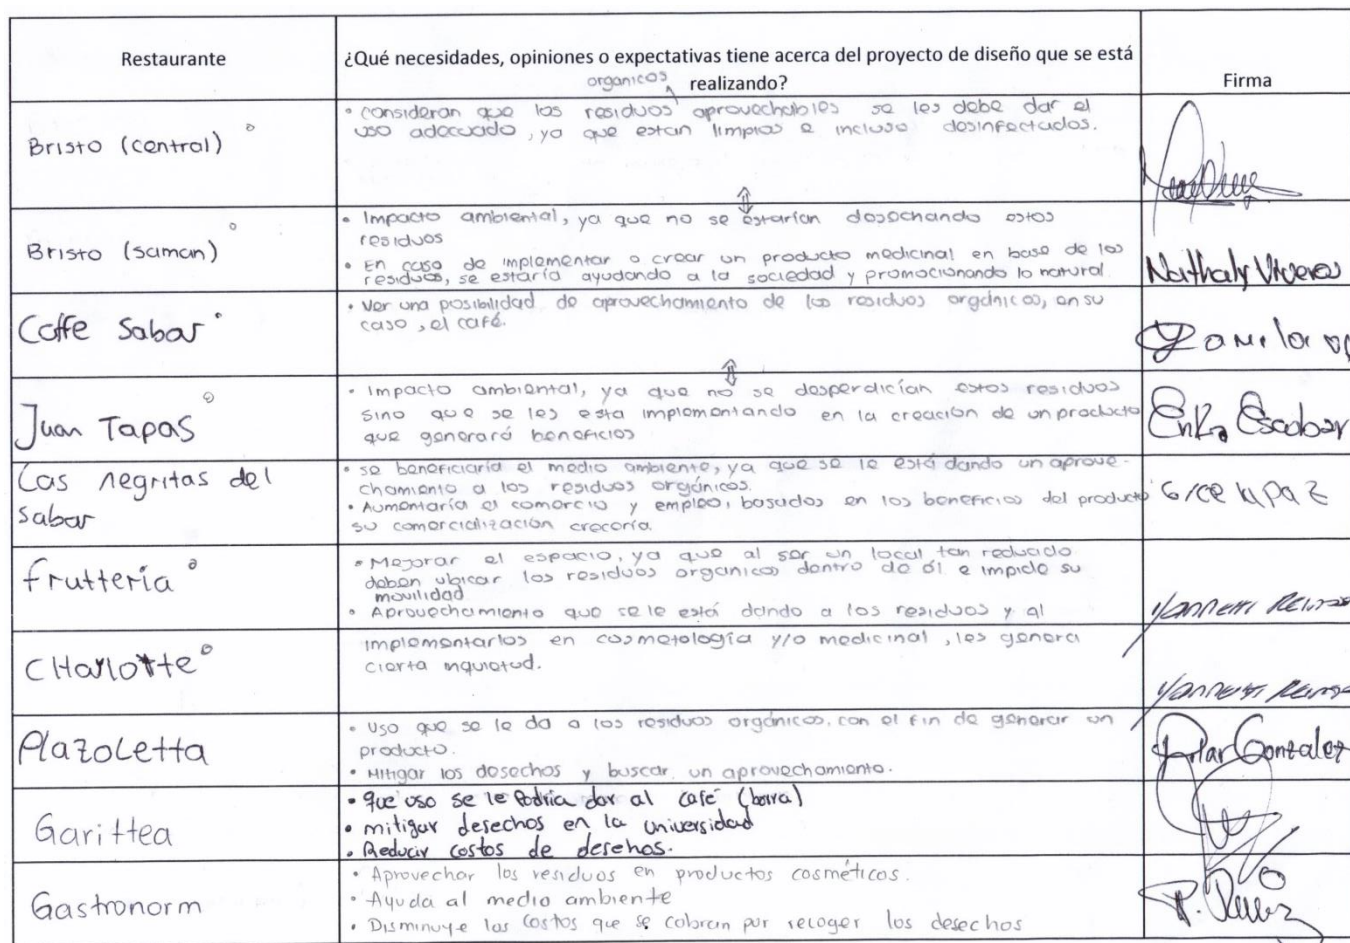 Restaurante
¿Qué necesidades, opiniones o expectativas tiene acerca del proyecto de diseño que se está
realizando?
organicos
Firma
Bristo (central)
• consideran que los residuos aprovechables se les debe dar el
uso adecuado, ya que estan limpios e incluso desinfectados.
Bristo (saman)
• Impacto ambiental, ya que no se estarían desechando estos
residuos
• En caso de implementar o crear un producto medicinal en base de los
residuos, se estaría ayudando a la sociedad y promocionando lo natural.
Nathaly Viveros
Caffe Sabor
• Ver una posibilidad de aprovechamiento de los residuos orgánicos, en su
caso, el café.
Juan Tapas
• Impacto ambiental, ya que no se desperdician estos residuos
sino que se les esta implementando en la creación de un producto
que generará beneficios
Erika Escobar
Las negritas del
sabor
• se beneficiaría el medio ambiente, ya que se le está dando un aprove-
chamiento a los residuos orgánicos.
• Aumentaría el comercio y empleo, basados en los beneficios del producto
su comercialización crecería.
frutteria
• Mejorar el espacio, ya que al ser un local tan reducido
deben ubicar los residuos organicos dentro de él e impide su
movilidad
• Aprovechamiento que se le está dando a los residuos y al
CHarlotte
implementarlos en cosmetología y/o medicinal, les genera
cierta inquietud.
Plazoletta
• Uso que se le da a los residuos orgánicos, con el fin de generar un
producto.
• Mitigar los desechos y buscar un aprovechamiento.
Pilar Gonzalez
Garittea
• que uso se le Podria dar al café (borra)
• mitigar desechos en la universidad
• Reducir costos de desehos.
Gastronorm
• Aprovechar los residuos en productos cosméticos.
• Ayuda al medio ambiente
• Disminuye los costos que se cobran por recoger los desechos